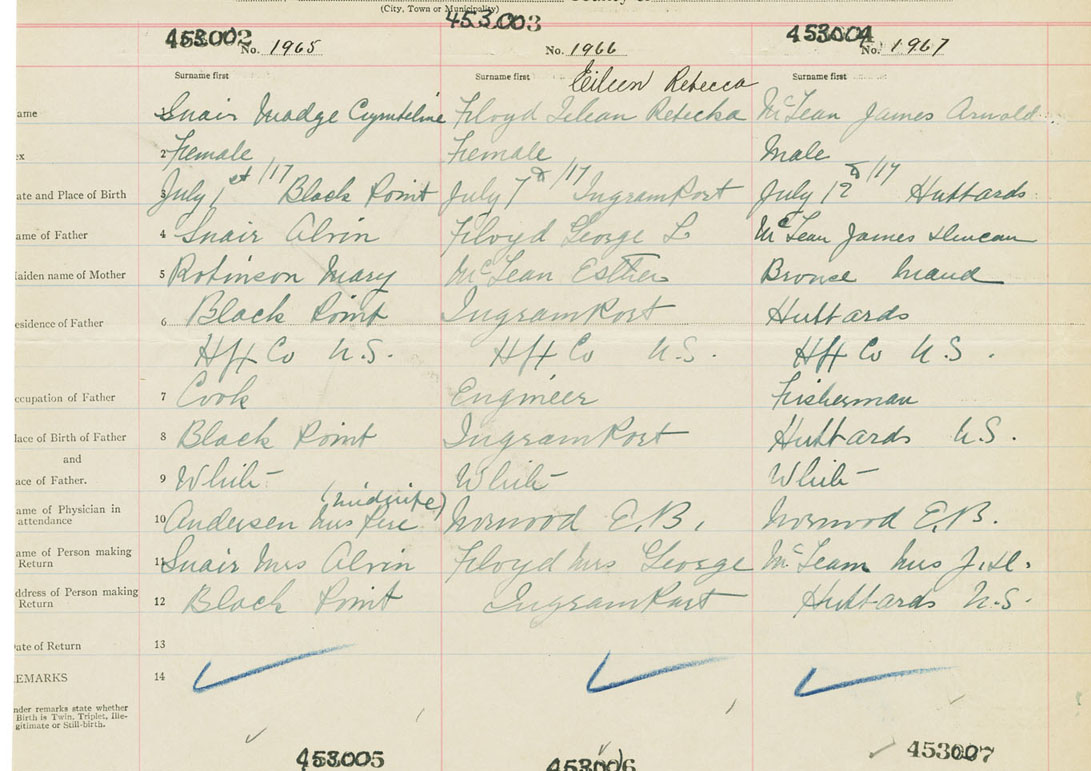 (City, Town or Municipality)
453002 453003 453004
No. 1965 No. 1966 No. 1967
Surname first Surname first Surname first
Eileen Rebecca
ame 1 Snair Madge Cymbeline Floyd Ilean Rebecka McLean James Arnold
ex 2 Female Female Male
ate and Place of Birth 3 July 1st/17 Black Point July 7th/17 IngramPort July 12th/17 Hubbards
ame of Father 4 Snair Alvin Floyd George L McLean James Duncan
aiden name of Mother 5 Robinson Mary McLean Esther Maud
esidence of Father 6 Black Point IngramPort Hubbards
Hfx Co N.S. Hfx Co N.S. Hfx Co N.S.
ccupation of Father 7 Cook Engineer Fisherman
lace of Birth of Father 8 Black Point IngramPort Hubbards N.S.
and
ace of Father. 9 White White White
(midwife)
ame of Physician in
attendance 10 Andersen Mrs Norwood E.B. Norwood E.B.
ame of Person making
Return 11 Snair Mrs Alvin Floyd Mrs George McLean Mrs J.D.
ddress of Person making
Return 12 Black Point IngramPort Hubbards N.S.
ate of Return 13
EMARKS 14
nder remarks state whether
Birth is Twin, Triplet, Ille-
gitimate or Still-birth.
453005 453006 453007